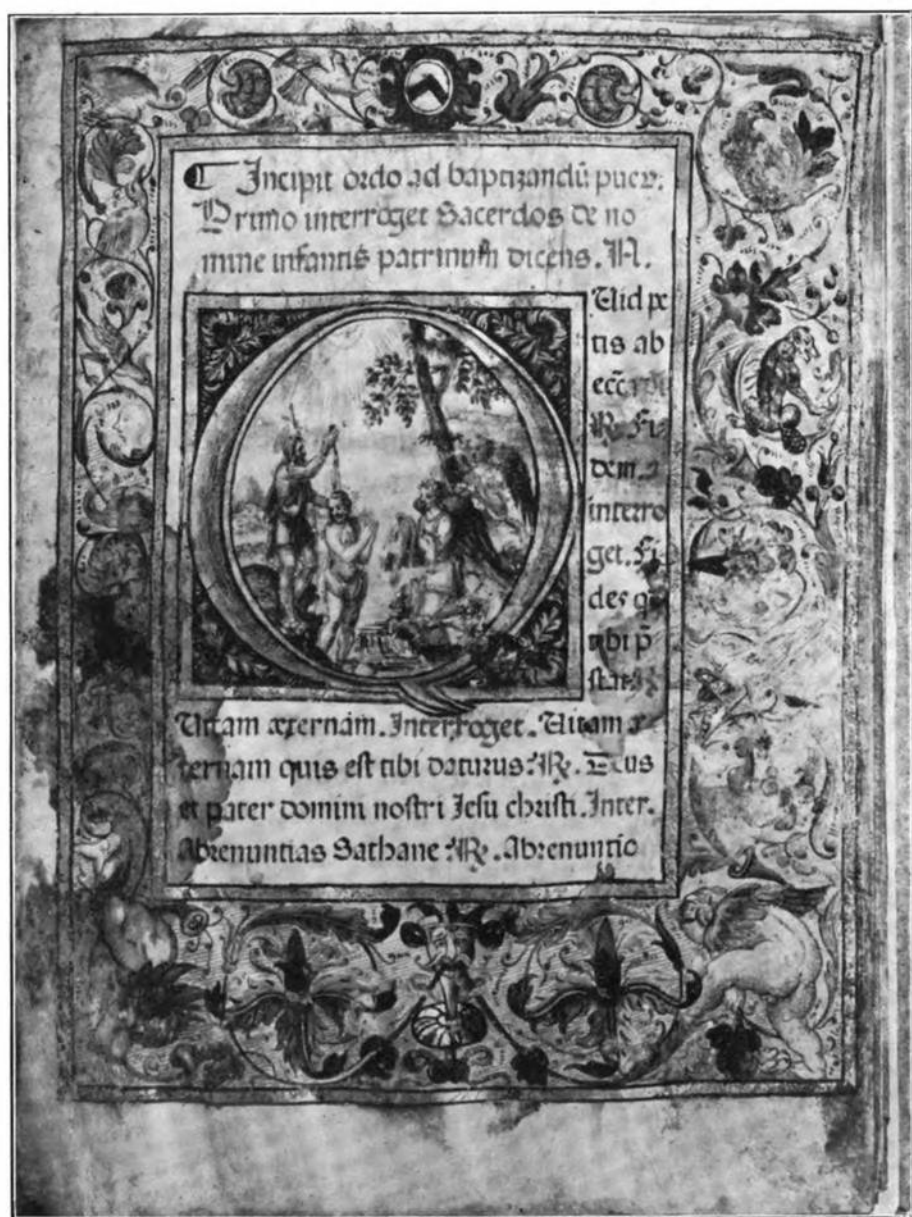 Incipit ordo ad baptizandū puer.
Primo interroget Sacerdos de no
mine infantis patrinum dicens. N.
Quid pe
tis ab
ecc̄
℟. Fi-
dem.
interro
get. Fi-
des q̄
tibi p̄
stat.
Uitam æternam. Interroget. Uitam æ
ternam quis est tibi daturus. ℟. Deus
et pater domini nostri Jesu christi. Inter.
Abrenuntias Sathane. ℟. Abrenuntio